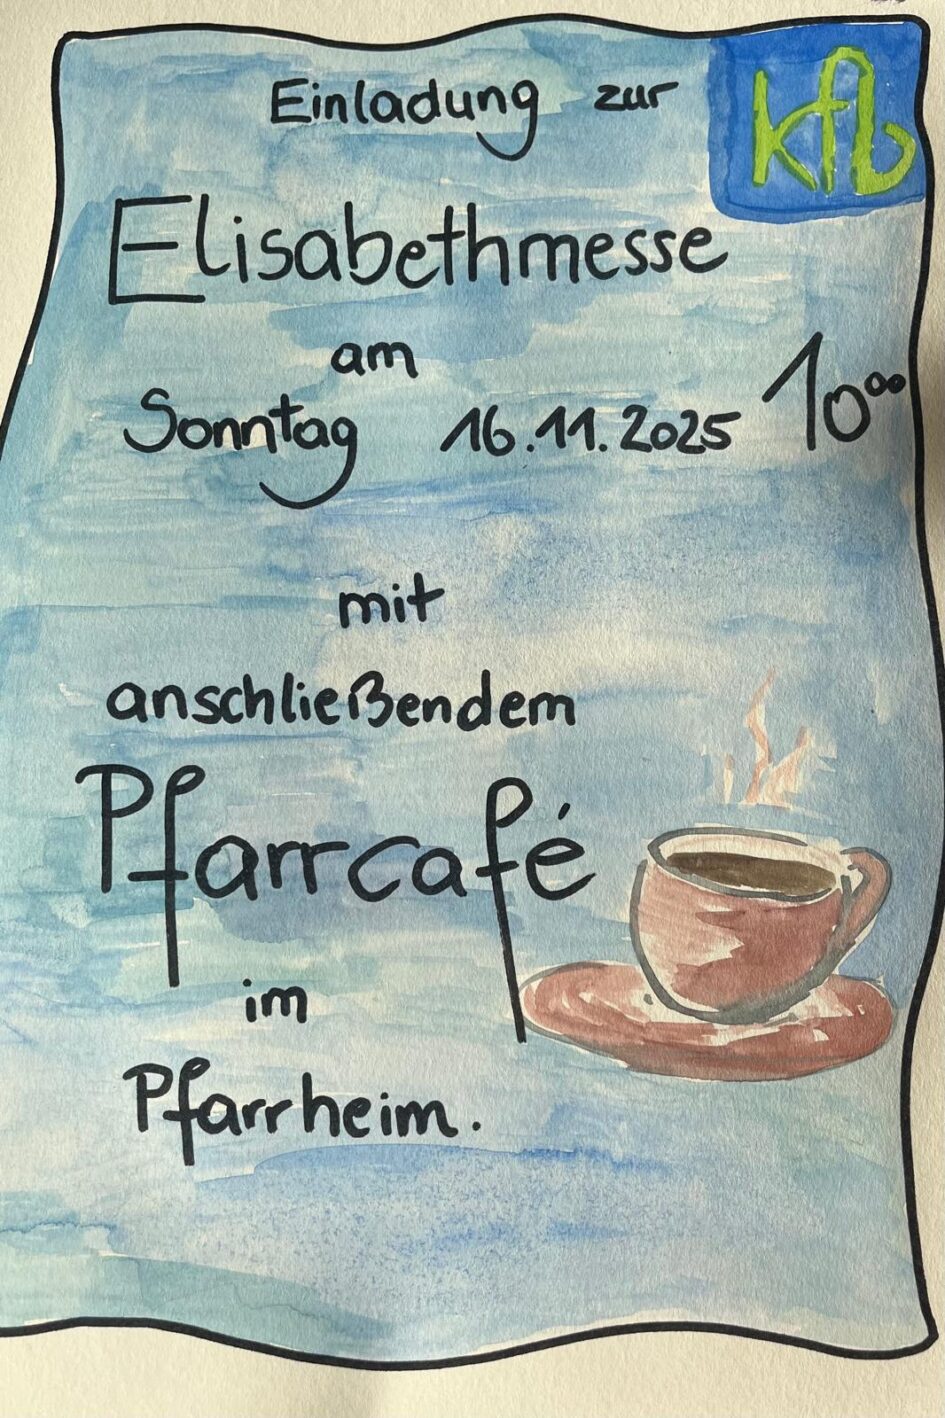 Einladung zur
kfb
Elisabethmesse
am
Sonntag 16.11.2025 10⁰⁰
mit
anschließendem
Pfarrcafé
im
Pfarrheim.